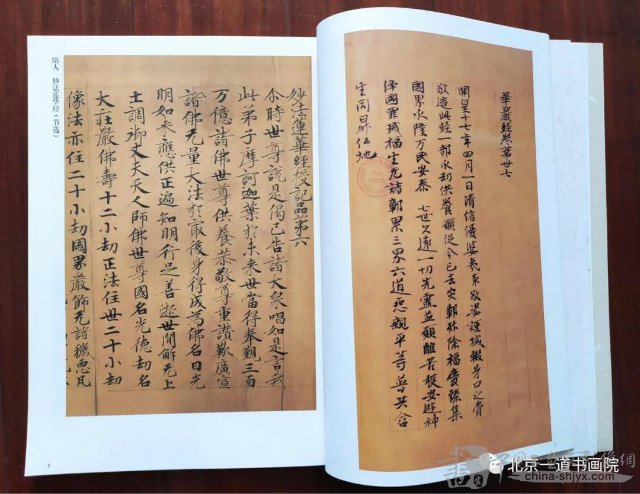 隋人 妙法莲华经（节选）
妙法蓮華經授記品第六
尒時世尊說是偈已告諸大衆唱如是言我
此弟子摩訶迦葉於未來世當得奉覲三百
万億諸佛世尊供養恭敬尊重讃歎廣宣
諸佛无量大法於最後身得成爲佛名曰光
明如來應供正遍知明行足善逝世間解无上
士調御丈夫天人師佛世尊國名光德劫名
大莊嚴佛壽十二小劫正法住世二十小劫
像法亦住二十小劫國界嚴飾无諸穢惡瓦
4
華嚴經卷第卌七
開皇十七年四月一日清信優婆夷袁敬姿謹減身口之費
敬造此經一部永劫供養願從今已去灾鄣殄除福慶臻集
國界永隆万民安泰七世久遠一切先靈並願離苦獲安遊神
淨國罪滅福生无諸鄣累三界六道怨親平等普共含
生同昇仏地
北京一道书画院
china-shjyx.com